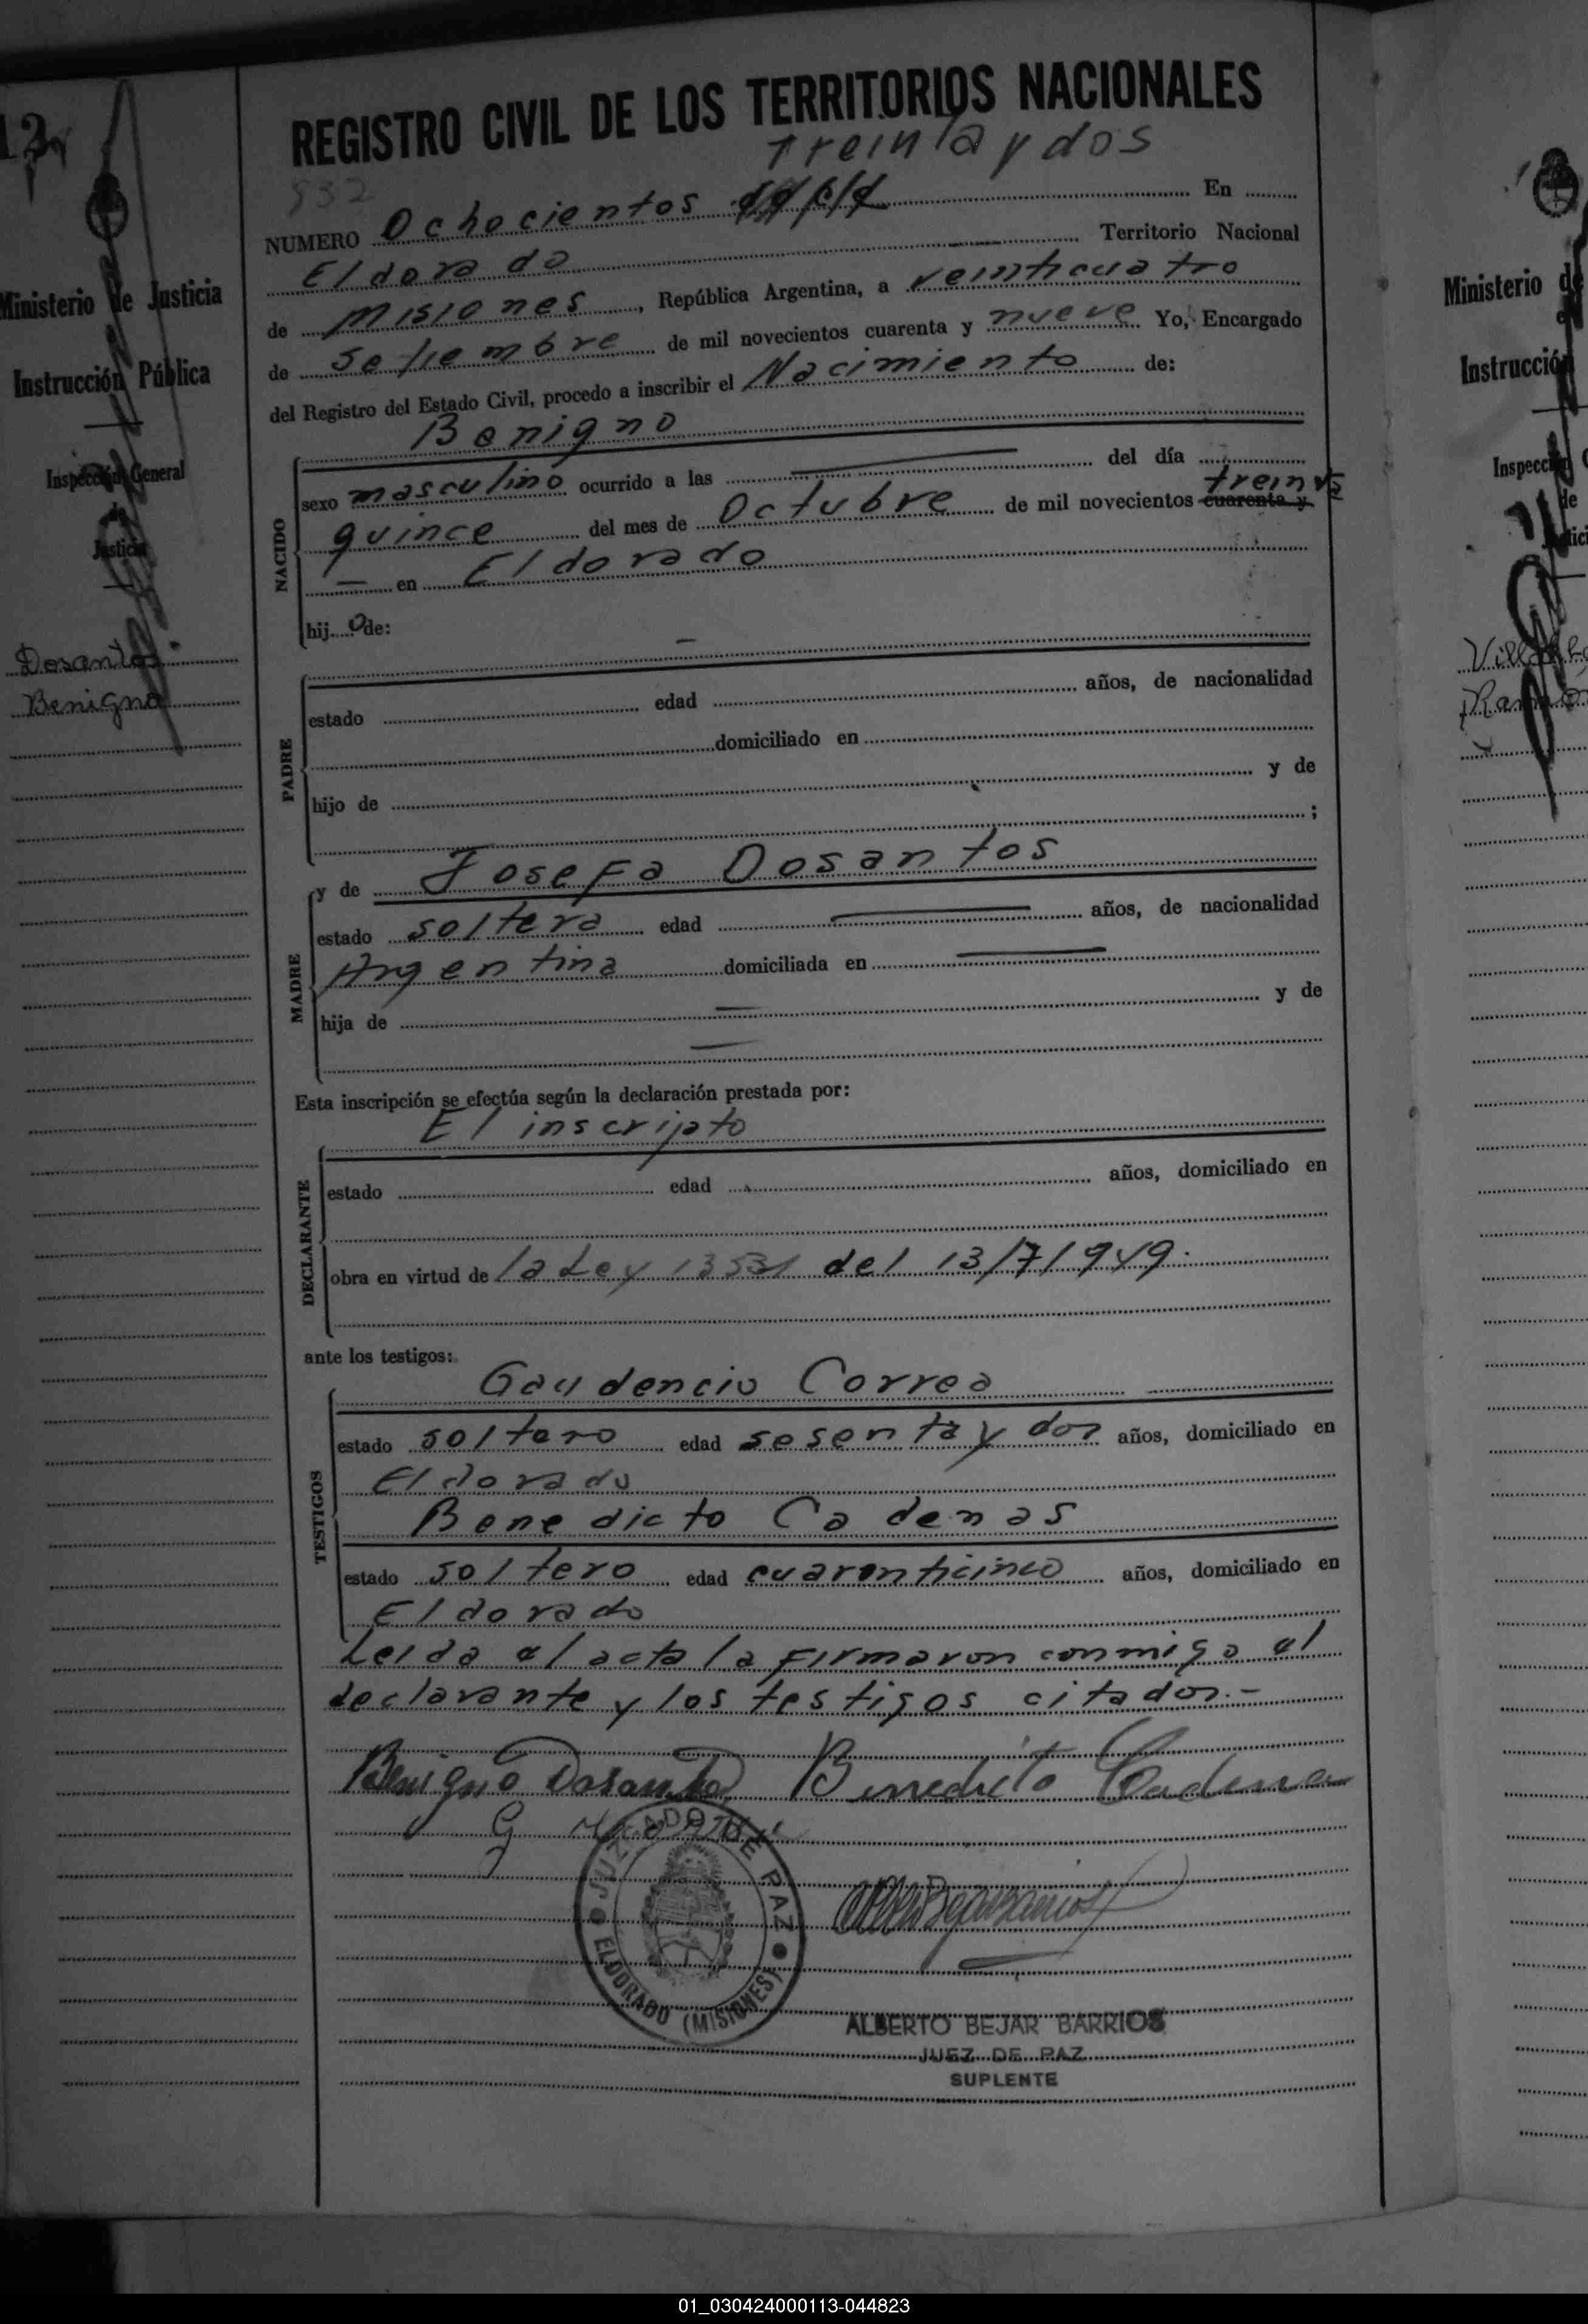 12
REGISTRO CIVIL DE LOS TERRITORIOS NACIONALES
treinta y dos
832
NUMERO Ochocientos En
Eldorado Territorio Nacional
de Misiones, República Argentina, a veinticuatro
de Setiembre de mil novecientos cuarenta y nueve Yo, Encargado
del Registro del Estado Civil, procedo a inscribir el Nacimiento de:
Benigno
NACIDO
sexo masculino ocurrido a las del día
treinta
quince del mes de Octubre de mil novecientos cuarenta y
en Eldorado
hijo de:
PADRE
estado edad años, de nacionalidad
domiciliado en
hijo de y de
;
MADRE
y de Josefa Dosantos
estado soltera edad años, de nacionalidad
Argentina domiciliada en
hija de y de
Esta inscripción se efectúa según la declaración prestada por:
El inscripto
DECLARANTE
estado edad años, domiciliado en
obra en virtud de la Ley 13531 del 13/7/949.
ante los testigos:
TESTIGOS
Gaudencio Correa
estado soltero edad sesenta y dos años, domiciliado en
Eldorado
Benedicto Cadenas
estado soltero edad cuarenticinco años, domiciliado en
Eldorado
Leida el acta la firmaron conmigo el
declarante y los testigos citados.-
Benigno Dosantos Benedicto Cadena
G
JUZGADO DE PAZ
ELDORADO (MISIONES)
ALBERTO BEJAR BARRIOS
JUEZ DE PAZ
SUPLENTE
Ministerio de Justicia
Instrucción Pública
Inspección General
de
Justicia
Dosantos
Benigno
Ministerio de
Instrucción
Inspección
de
01_030424000113-044823